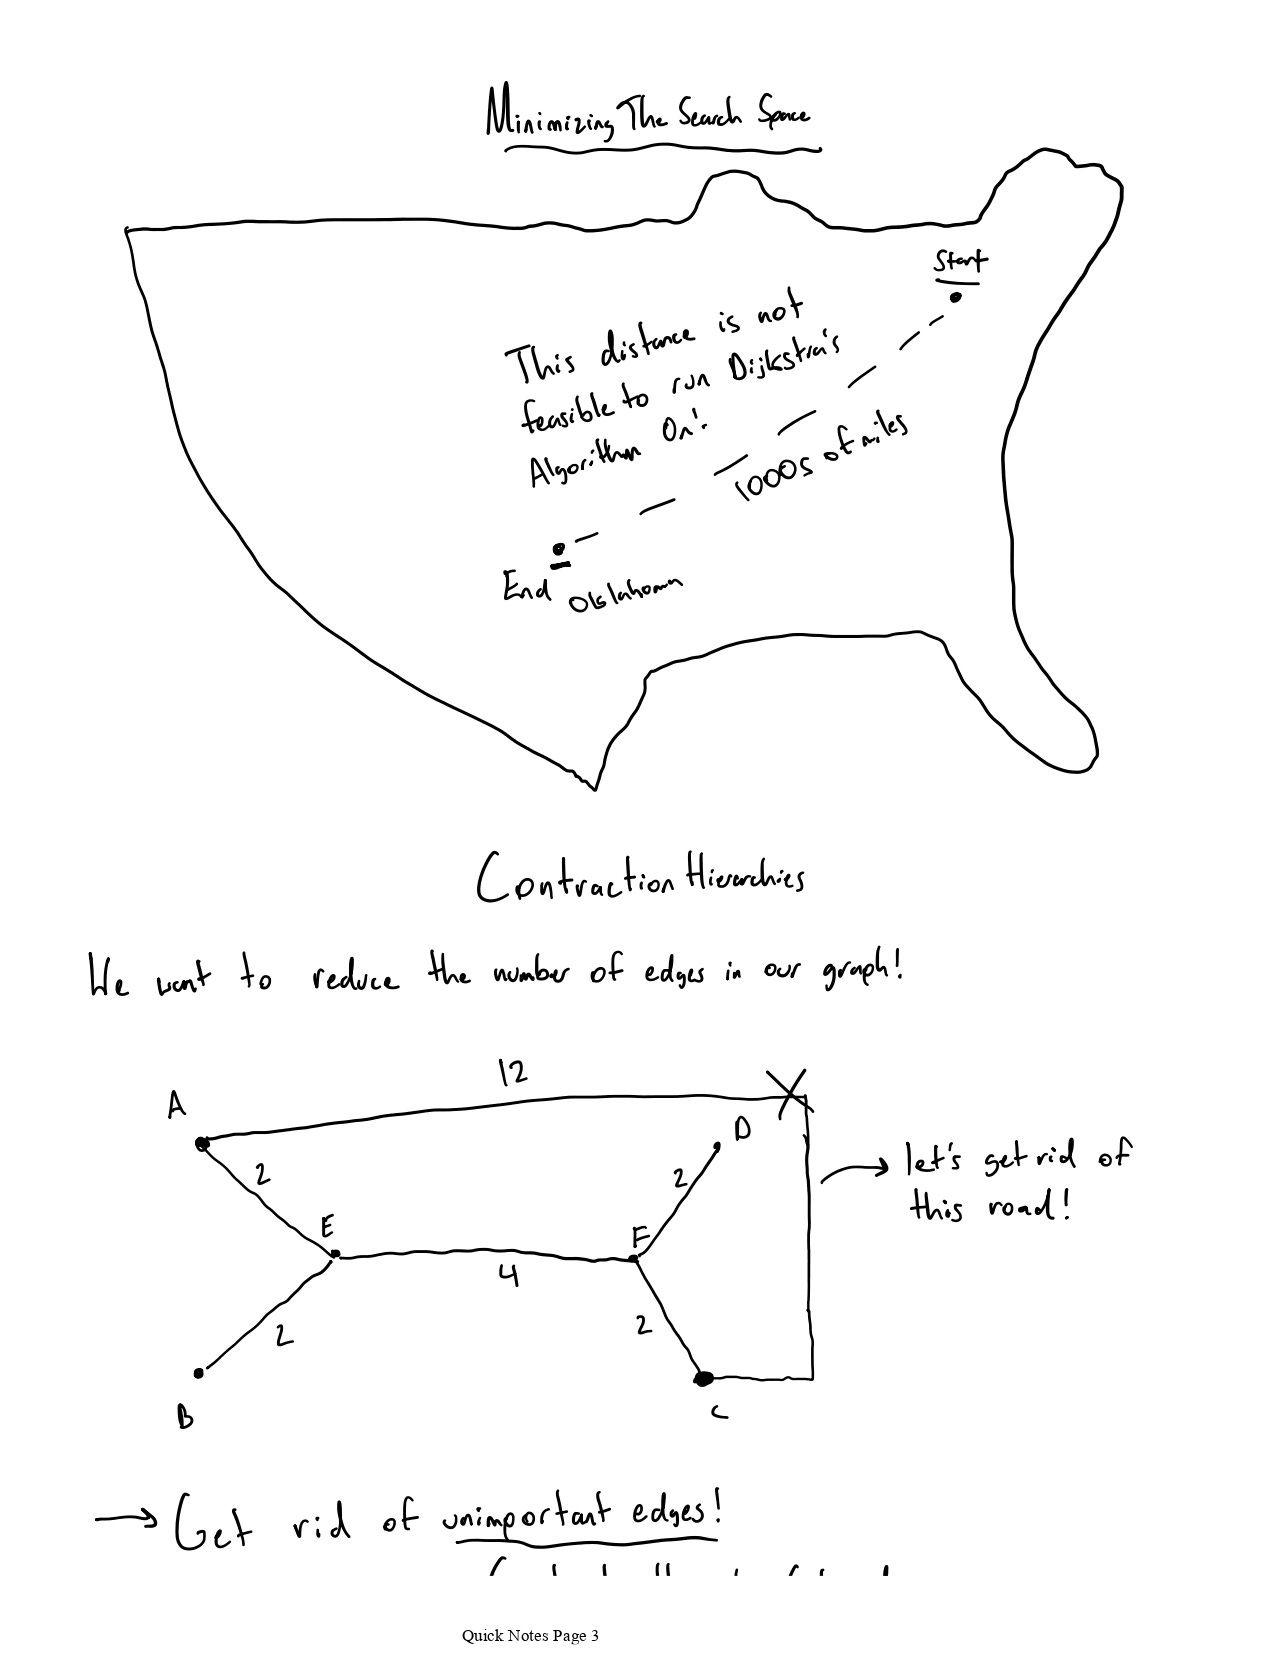 Minimizing The Search Space
Start
This distance is not
feasible to run Dijkstra's
Algorithm On!
1000s of miles
End
Oklahoma
Contraction Hierarchies
We want to reduce the number of edges in our graph!
12
A
D
2
2
let's get rid of
this road!
E
F
4
2
2
B
C
→ Get rid of unimportant edges!
Quick Notes Page 3